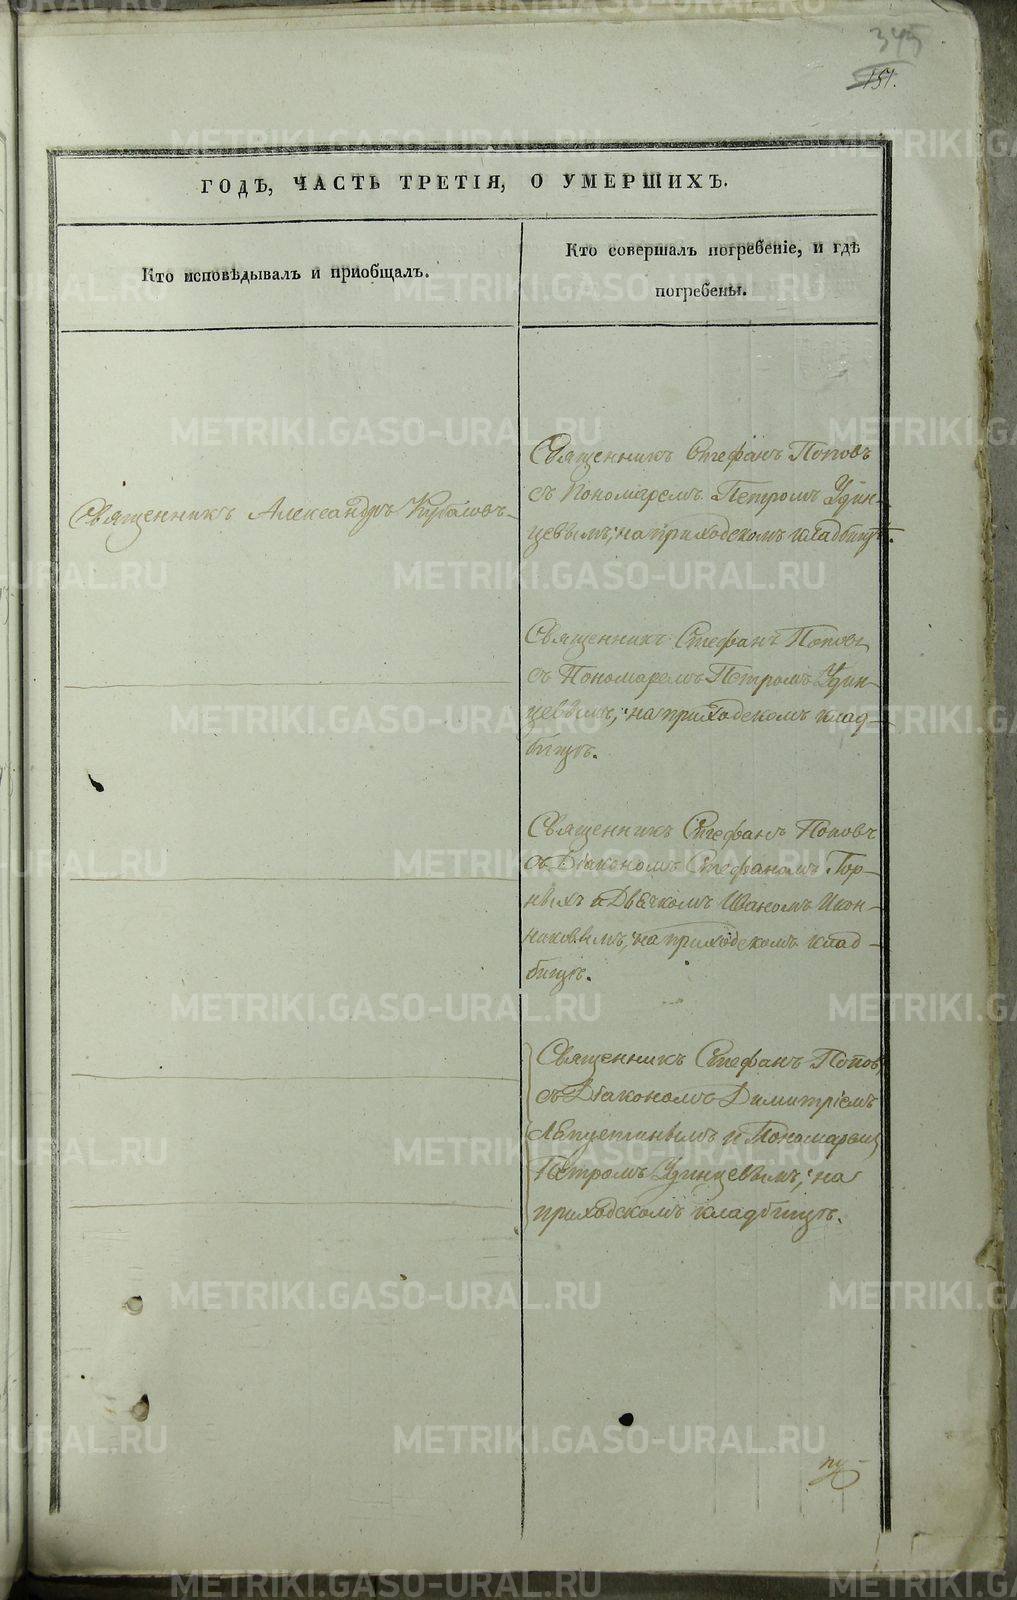 345
151.
ГОДЪ, ЧАСТЬ ТРЕТІЯ, О УМЕРШИХЪ.
Кто исповѣдывалъ и пріобщалъ.
Кто совершалъ погребеніе, и гдѣ
погребены.
Священникъ Александръ
Священникъ Стефанъ Поповъ
съ Пономаремъ Петромъ Удин-
цевымъ, на приходскомъ кладбищѣ.
Священникъ Стефанъ Поповъ
съ Пономаремъ Петромъ Удин-
цевымъ, на приходскомъ клад-
бищѣ.
Священникъ Стефанъ Поповъ
съ Діакономъ Стефаномъ Гор-
ныхъ и Дьячкомъ Иваномъ Икон-
никовымъ, на приходскомъ клад-
бищѣ.
Священникъ Стефанъ Поповъ
съ Діакономъ Димитріемъ
Лапустинымъ и Пономаремъ
Петромъ Удинцевымъ, на
приходскомъ кладбищѣ.
METRIKI.GASO-URAL.RU